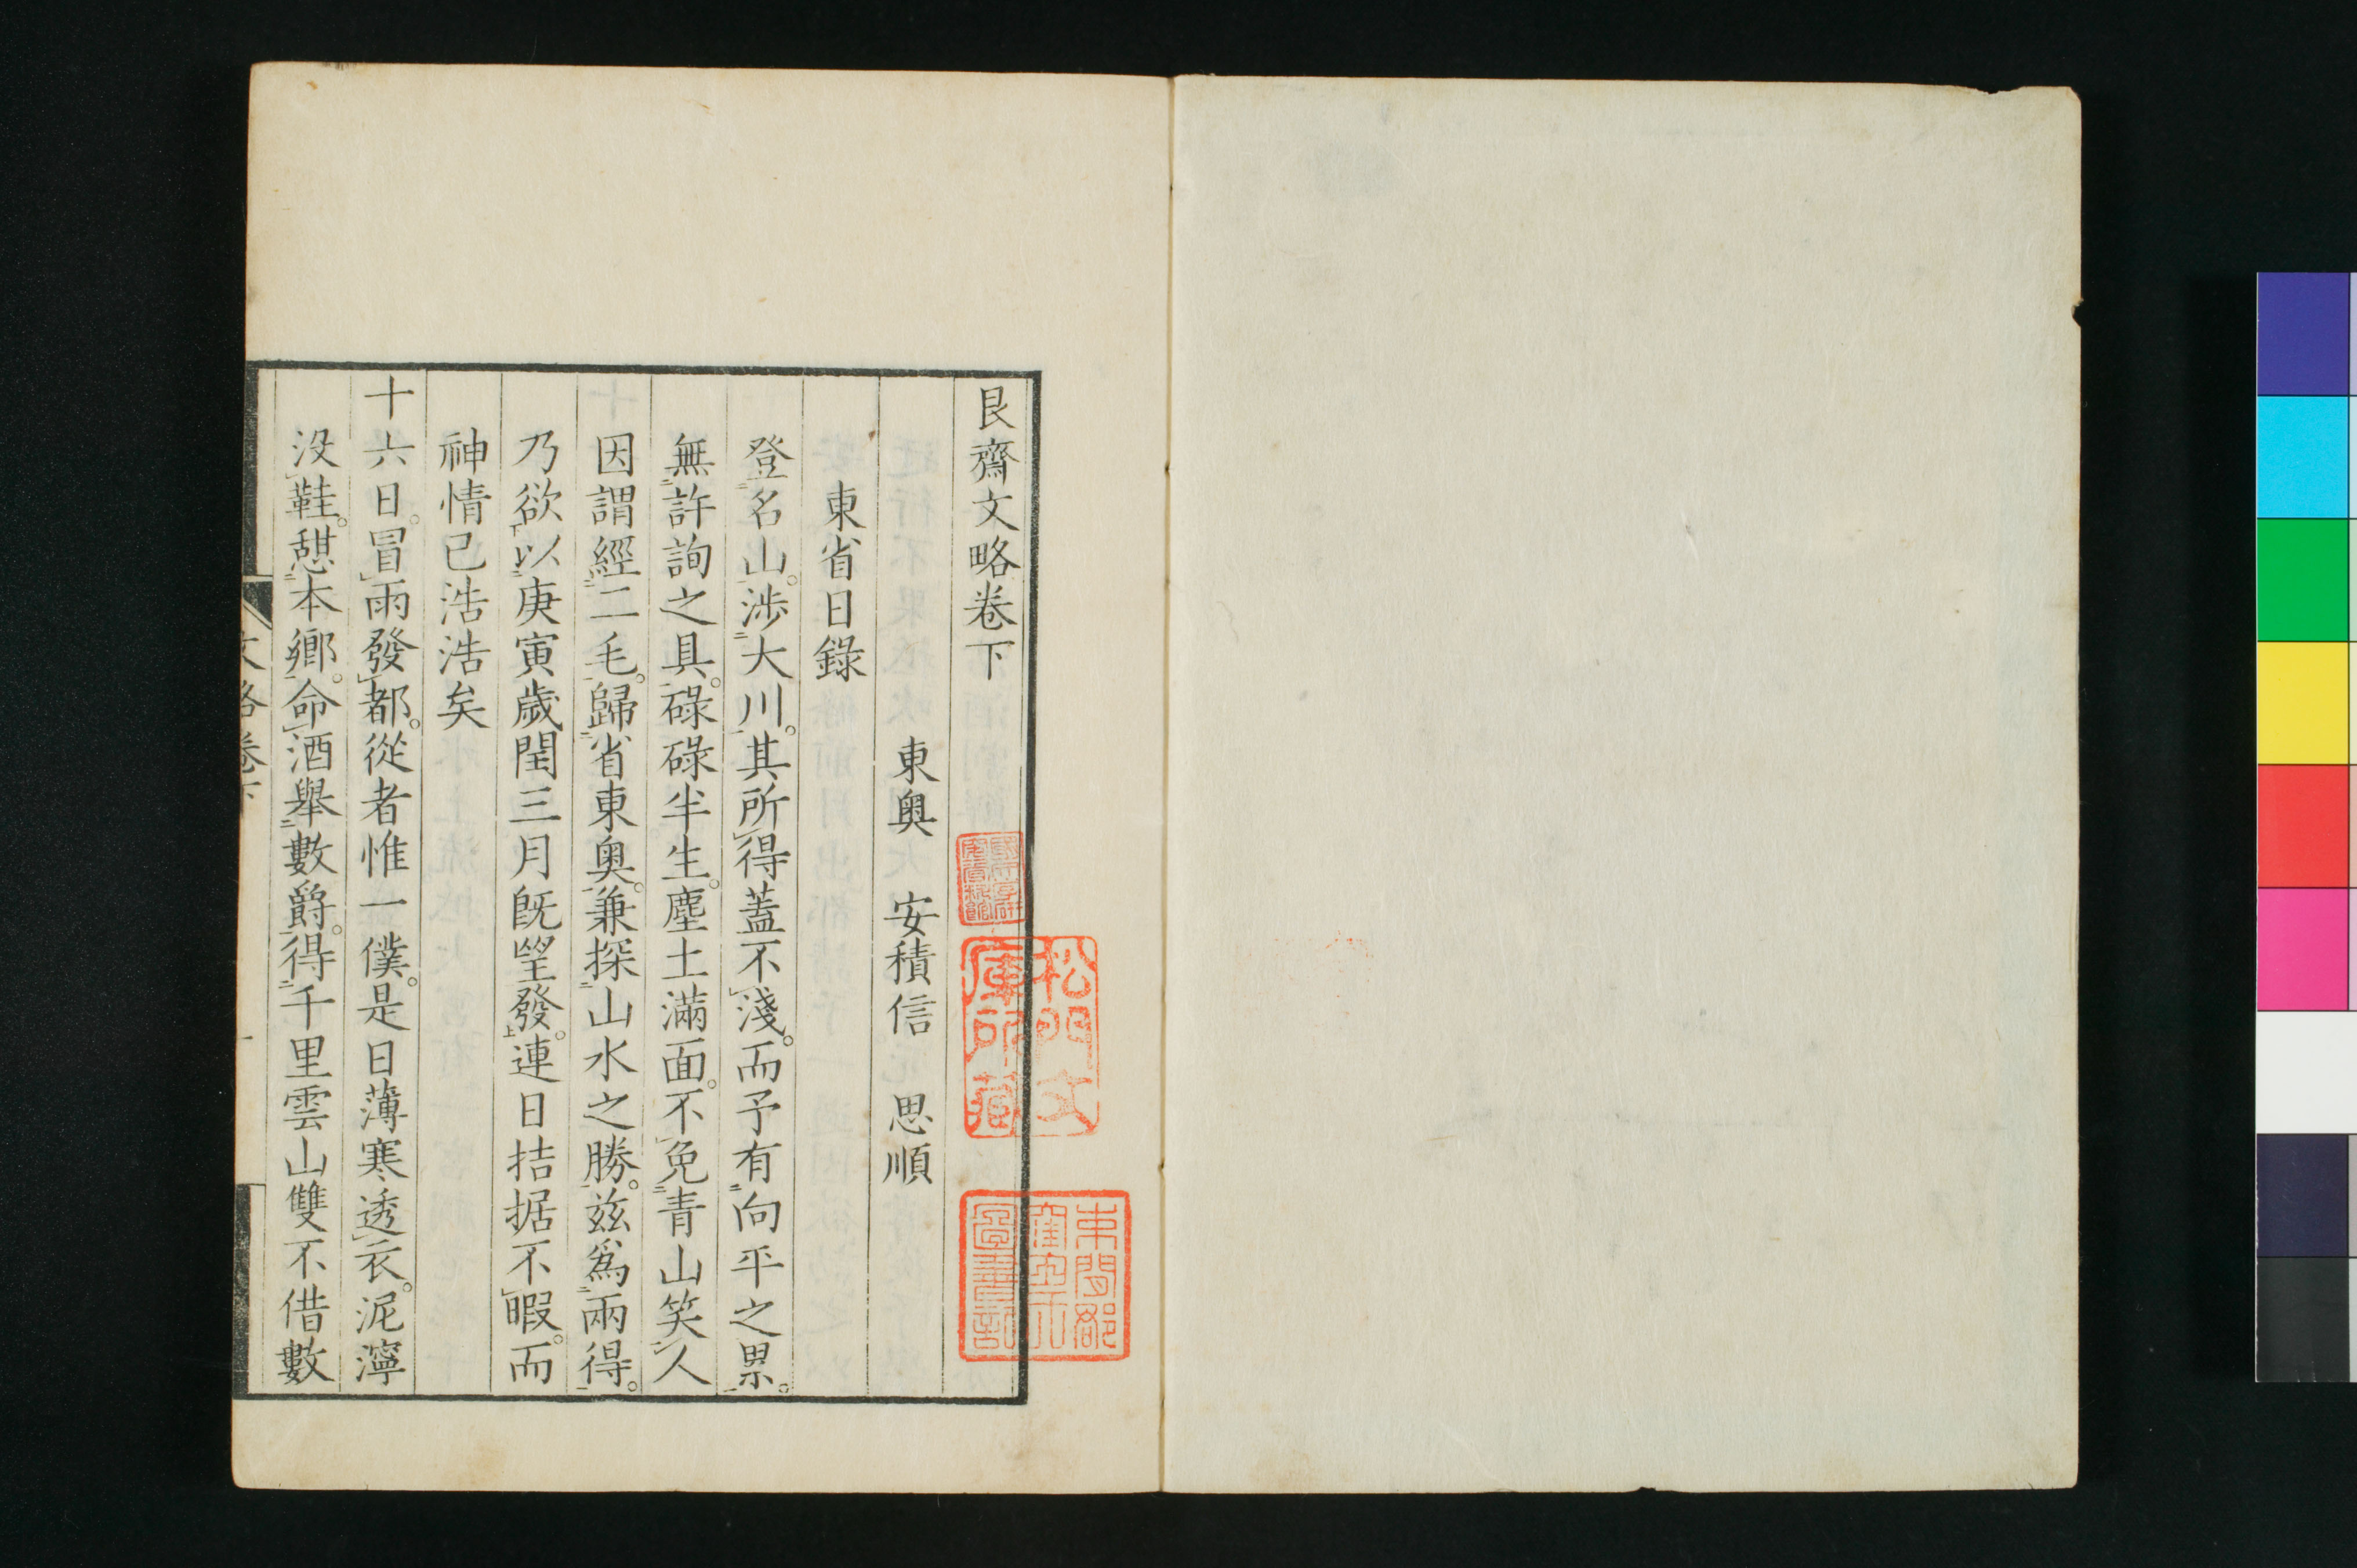 艮齋文略卷下
東奥 安積信 思順
東省日錄
登名山。渉大川。其所得蓋不淺。而予有向平之累。
無許詢之具。碌碌半生。塵土滿面。不免青山笑人
因謂經二毛。歸省東奥。兼探山水之勝。兹爲兩得。
乃欲以庚寅歲閏三月既望發。連日拮据不暇。而
神情已浩浩矣
十六日。冒雨發都。從者惟一僕。是日薄寒透衣。泥濘
没鞋。憇本鄉。命酒舉數爵。得千里雲山雙不借數
文略卷下
一
松門文
庫所藏
圖書記